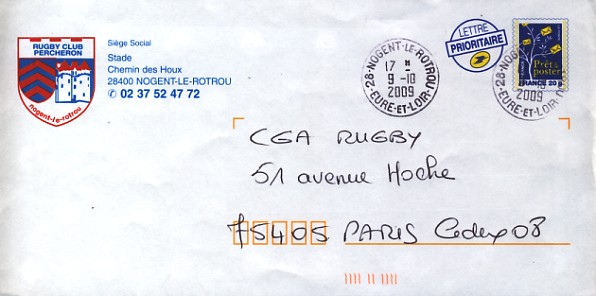 RUGBY CLUB
PERCHERON
nogent-le-rotrou
Siège Social
Stade
Chemin des Houx
28400 NOGENT-LE-ROTROU
✆ 02 37 52 47 72
28-NOGENT-LE-ROTROU
17 H
9-10
2009
EURE-ET-LOIR
LETTRE
PRIORITAIRE
Prêt à
poster
FRANCE 20 g
28-NOGENT
2009
EURE-ET-LOIR
CGA RUGBY
51 avenue Hoche
75405 PARIS Cedex 08